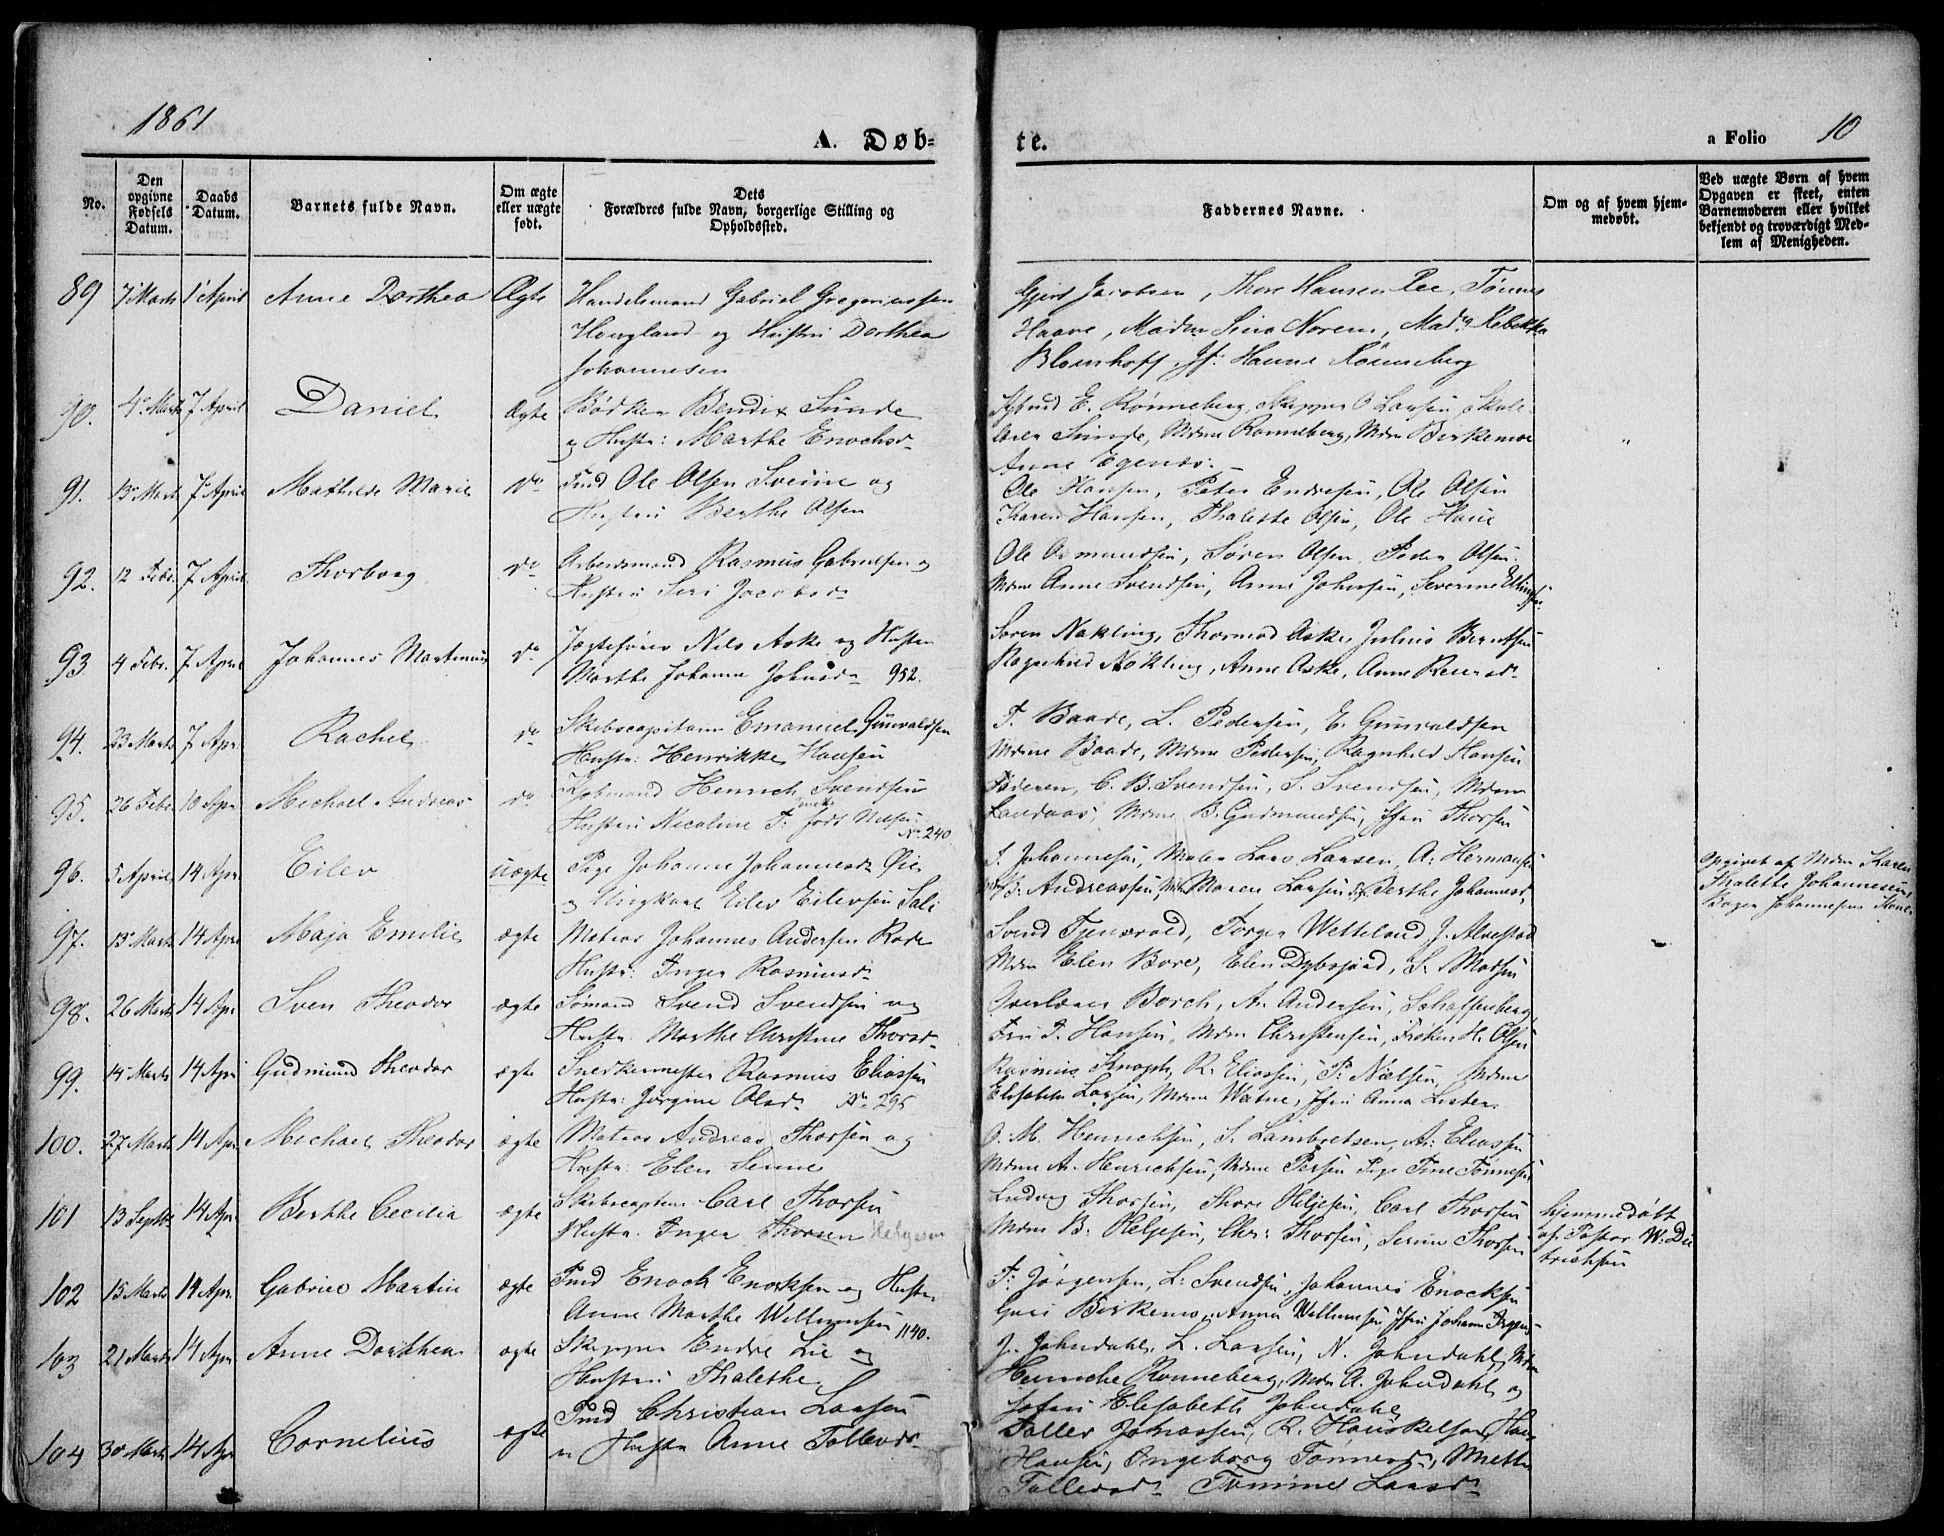 1861
A. Døb-
te.
a Folio 10
No.
Den opgivne Fødsels Datum.
Daabs Datum.
Barnets fulde Navn.
Om ægte eller uægte født.
Dets Forældres fulde Navn, borgerlige Stilling og Opholdssted.
Faddernes Navne.
Om og af hvem hjemmedøbt.
Ved uægte Børn af hvem Opgaven er skeet, enten Barnemoderen eller hvilket bekjendt og troværdigt Medlem af Menigheden.
89 7 Marts 1 April Anne Dorthea Ægte Handelsmand Gabriel Gregoriussen
Hougland og Hustru Dorthea
Johannesen
Gjert Jacobsen, Thore Hansen Ree, Tönnes
Haave, Madm Sina Noren, Madm Rebekka
Blomhoff, Jf. Hanne Rönneberg
90. 4 Marts 7 April Daniel Ægte Bödker Bendix Sunde
og Hustr: Marthe Enochsd.
E. Rønneberg, Skipper O Larsen, Skole
lærer Sunde, Mdme Rønneberg, Mdm Birkemoe
Anne Egenæs.
91. 13 Marts 7 April Mathilde Marie do Tmd Ole Olsen Sveine og
Hustru Berthe Olsen
Ole Hansen, Peter Endresen, Ole Olsen
Karen Hansen, Thaleste Olsen, Ole
92. 12 Febr. 7 April Thorborg do Arbeidsmand Rasmus Gabrielsen og
Hustru Siri Jacobsd
Ole Osmundsen, Sören Olsen, Peder Olsen
Mdm Anne Svendsen, Anne Johnsen, Severine
93 4 Febr. 7 April Johannes Martinius do Jægtefører Nils Aske og Hustru
Marthe Johanna Johnsd 952.
Sören Nøkling, Thormod Aske, Julius Berntsen
Ragnhild Nøkling, Anne Aske, Anne
94. 23 Marts 7 Apr. Rachel do Skibscapitain Emanuel Gunvaldsen
Hustr: Henrikke Hansen
T. Baade, L. Pedersen, E. Gunvaldsen
Mdme Baade, Mdme Pedersen, Ragnhild Hansen
95. 26 Febr. 10 Apr Michael Andreas do Kjøbmand Henrich Svendsen
Hustru Nicoline T. født Nilsen No 240
Faderen, C. B. Svendsen, S. Svendsen, Mdme
Landaas, Mdme B. Gudmundsen, Jfru Thorsen
96. 5 April 14 Apr Eilev uægte Pige Johanne Johannesd Øie
og Ungkarl Eilev Eilevsen Sali
J. Johannesen, Mates Lars Larsen, A. Hermansen
Andreassen, Mdm Maren Larsen, Berthe Johannesd,
Opgivet af Mdm Karen
Thalette Johannesen,
97. 13 Marts 14 Apr Maja Emilie ægte Matros Johannes Andersen Rode
Hustr: Inger Rasmusd
Svend Tjensvold, Torger Wetteland J. Alvestad
Mdm Elen Bore, Elen Dybsjord, S. Madsen
98. 26 Marts 14 Apr Sven Theodor ægte Sömand Svend Svendsen og
Hustr: Marthe Christine Thorsd
Overlærer Borch, A. Andersen, Schaffenberg,
Fru T. Hansen, Mdm Christensen, Frøken H. Olsen
99. 14 Marts 14 Apr Gudmund Theodor ægte Snedkermester Rasmus Eliassen
Hustr: Jørgine Olsd No 295
Rasmus Knoph, R. Eliassen, P. Nielsen, Mdme
Elisabeth Larsen, Mdme Watne, Jfru Anna Lister
100. 27 Marts 14 Apr Michael Theodor ægte Matros Andreas Thorsen og
Hustr: Elen Serine
O. M. Henrichsen, S. Lambretsen, A. Eliassen
Mdme A. Henrichsen, Mdme Persen Pige Tine Tönnesen
101 13 Septbr 14 Apr Berthe Cecilia ægte Skibscaptein Carl Thorsen
Hustr. Inger Thorsen Helgesen
Ludvig Thorsen, Thore Heljesen, Carl Thorsen
Mdme B. Heljesen, Chr: Thorsen, Serine Thorsen
hjemmedöbt
af Pastor W. Die
trichsen
102 15 Marts 14 Apr. Gabriel Martin ægte Tmd Enoch Enoksen og Hustr.
Anne Marthe Willumsen 1140.
T. Jörgensen, L. Svendsen, Johannes Enocksen
Guri Birkemo, Anna Willumsen, Jfru Johanne
103 21 Marts 14 Apr Anne Dorthea ægte Skipper Endre Lie og
Hustru Thalethe
J. Johndahl, L. Larsen, N. Johndahl, Mdm
Henriche Rönneberg, Mdm A. Johndahl og
Jfru Elisabeth Johndahl
104 30 Marts 14 Apr Cornelius ægte Tmd Christian Larsen
og Hustr Anne Tollevsd
Toller Johnassen, R. Hauskelsen, Hans
Hansen, Ingeborg Tönnesd, Mette
Tollevsd Tomine Larsd